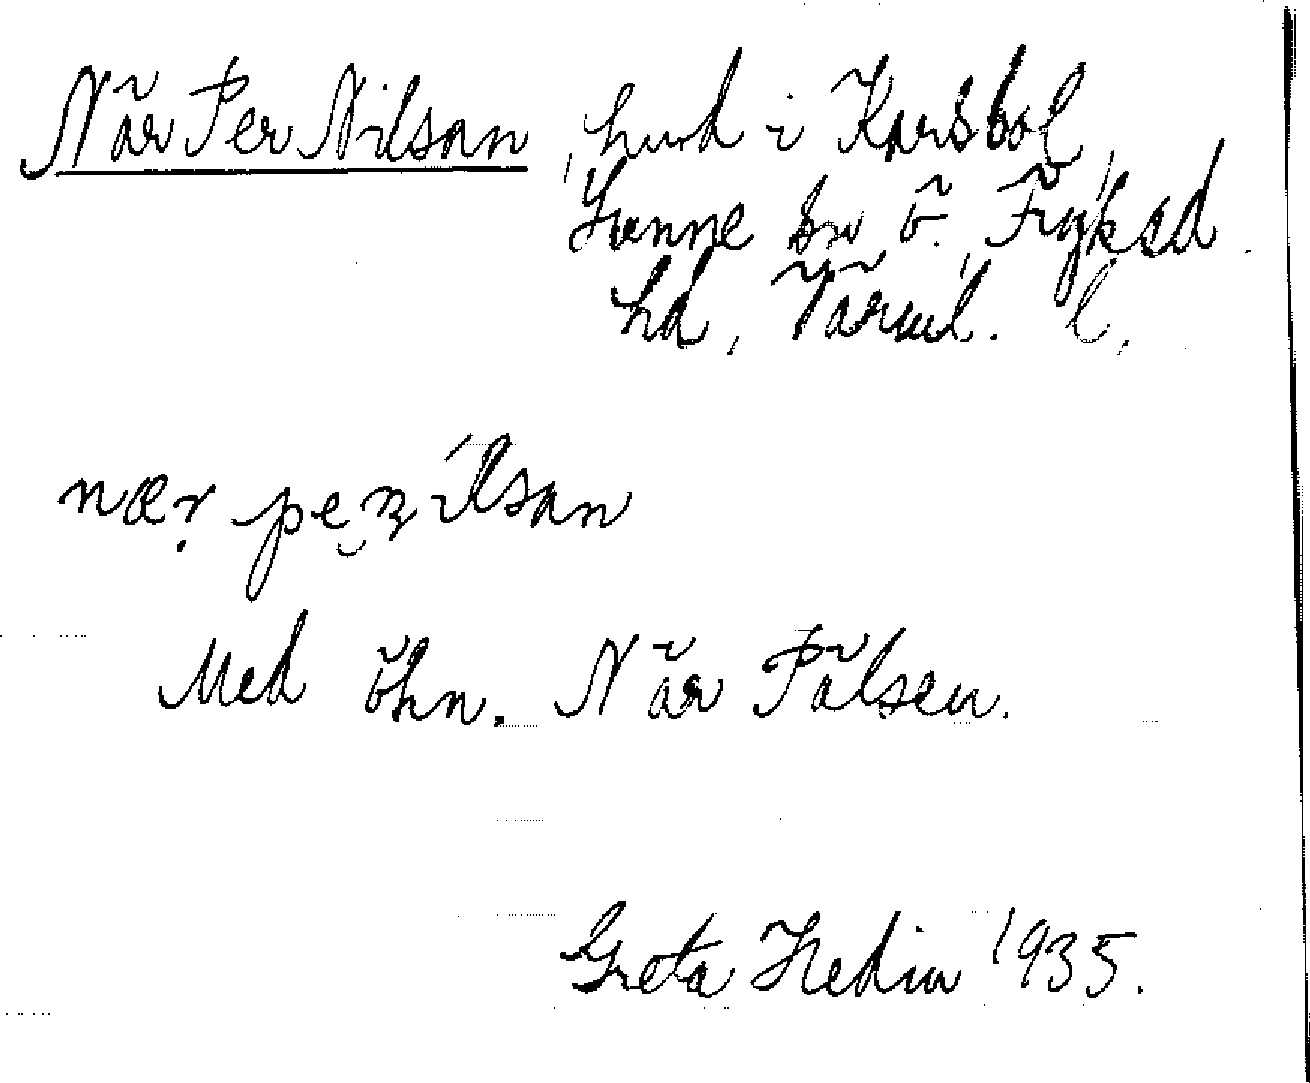 När Per Nilsan, hmd i Karsbol,
Sunne sn Ö. Fryksd.
hd, Värml. l.
nær pe ílsan
Med öhn. När Pålsen.
Greta Hedin 1935.